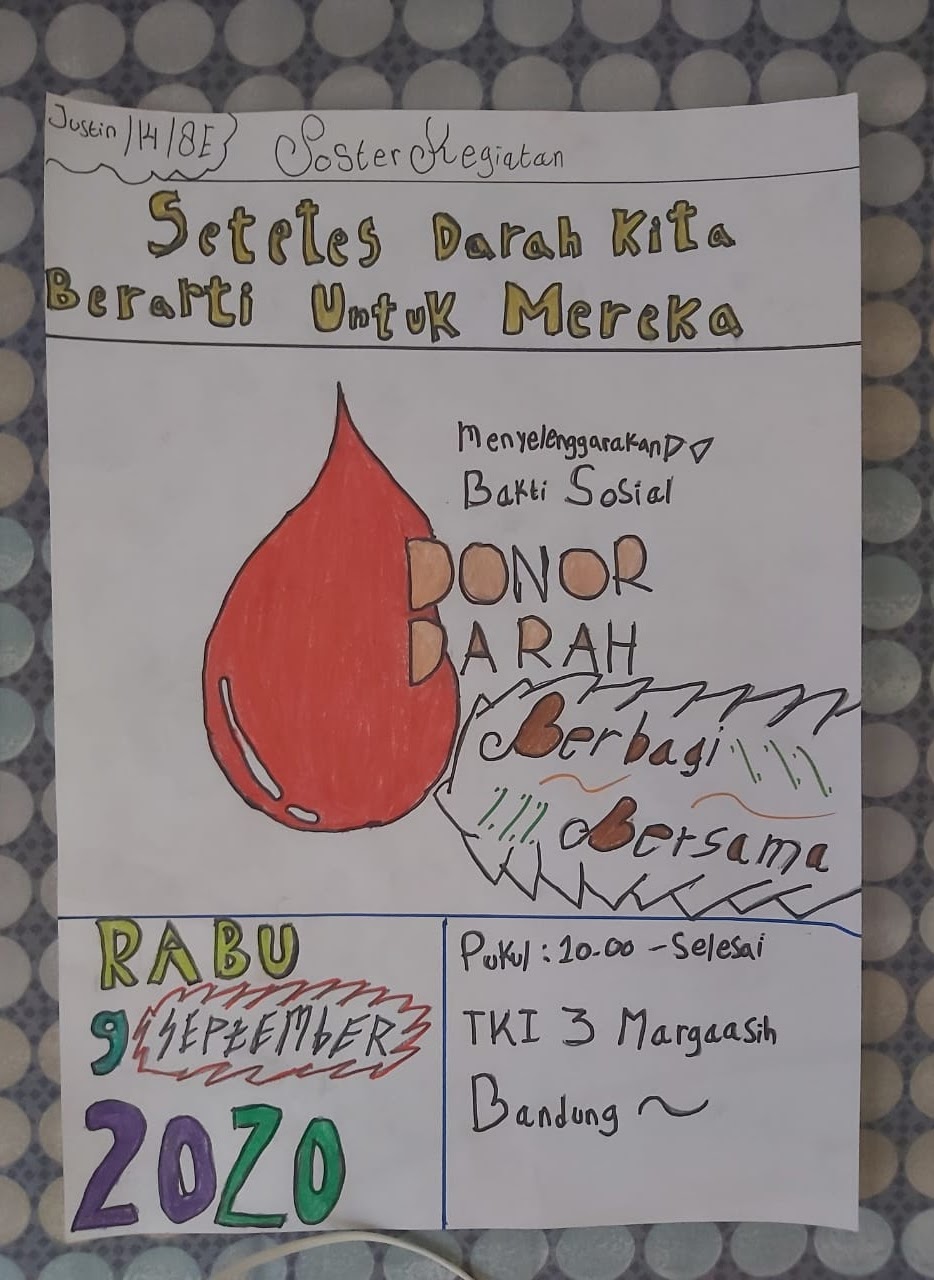 Justin/14/8E
Poster Kegiatan
Setetes Darah Kita
Berarti Untuk Mereka
Menyelenggarakan
Bakti Sosial
DONOR
DARAH
Berbagi
Bersama
RABU
9 SEPTEMBER
2020
Pukul : 10.00 - Selesai
TKI 3 Margaasih
Bandung ~